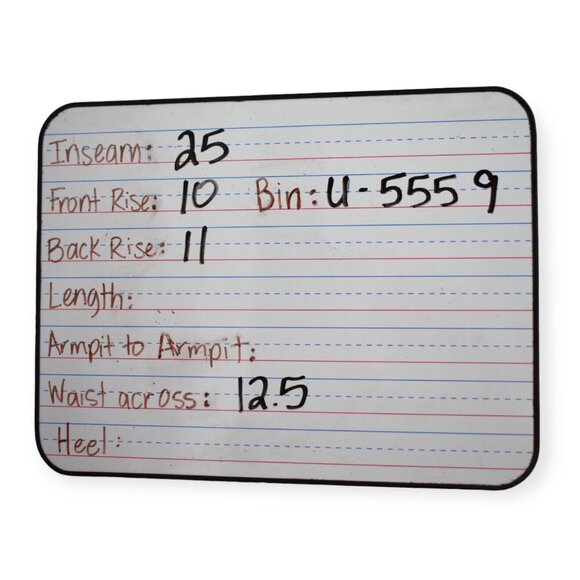 Inseam: 25
Front Rise: 10 Bin: U-5559
Back Rise: 11
Length:
Armpit to Armpit:
Waist across: 12.5
Heel: